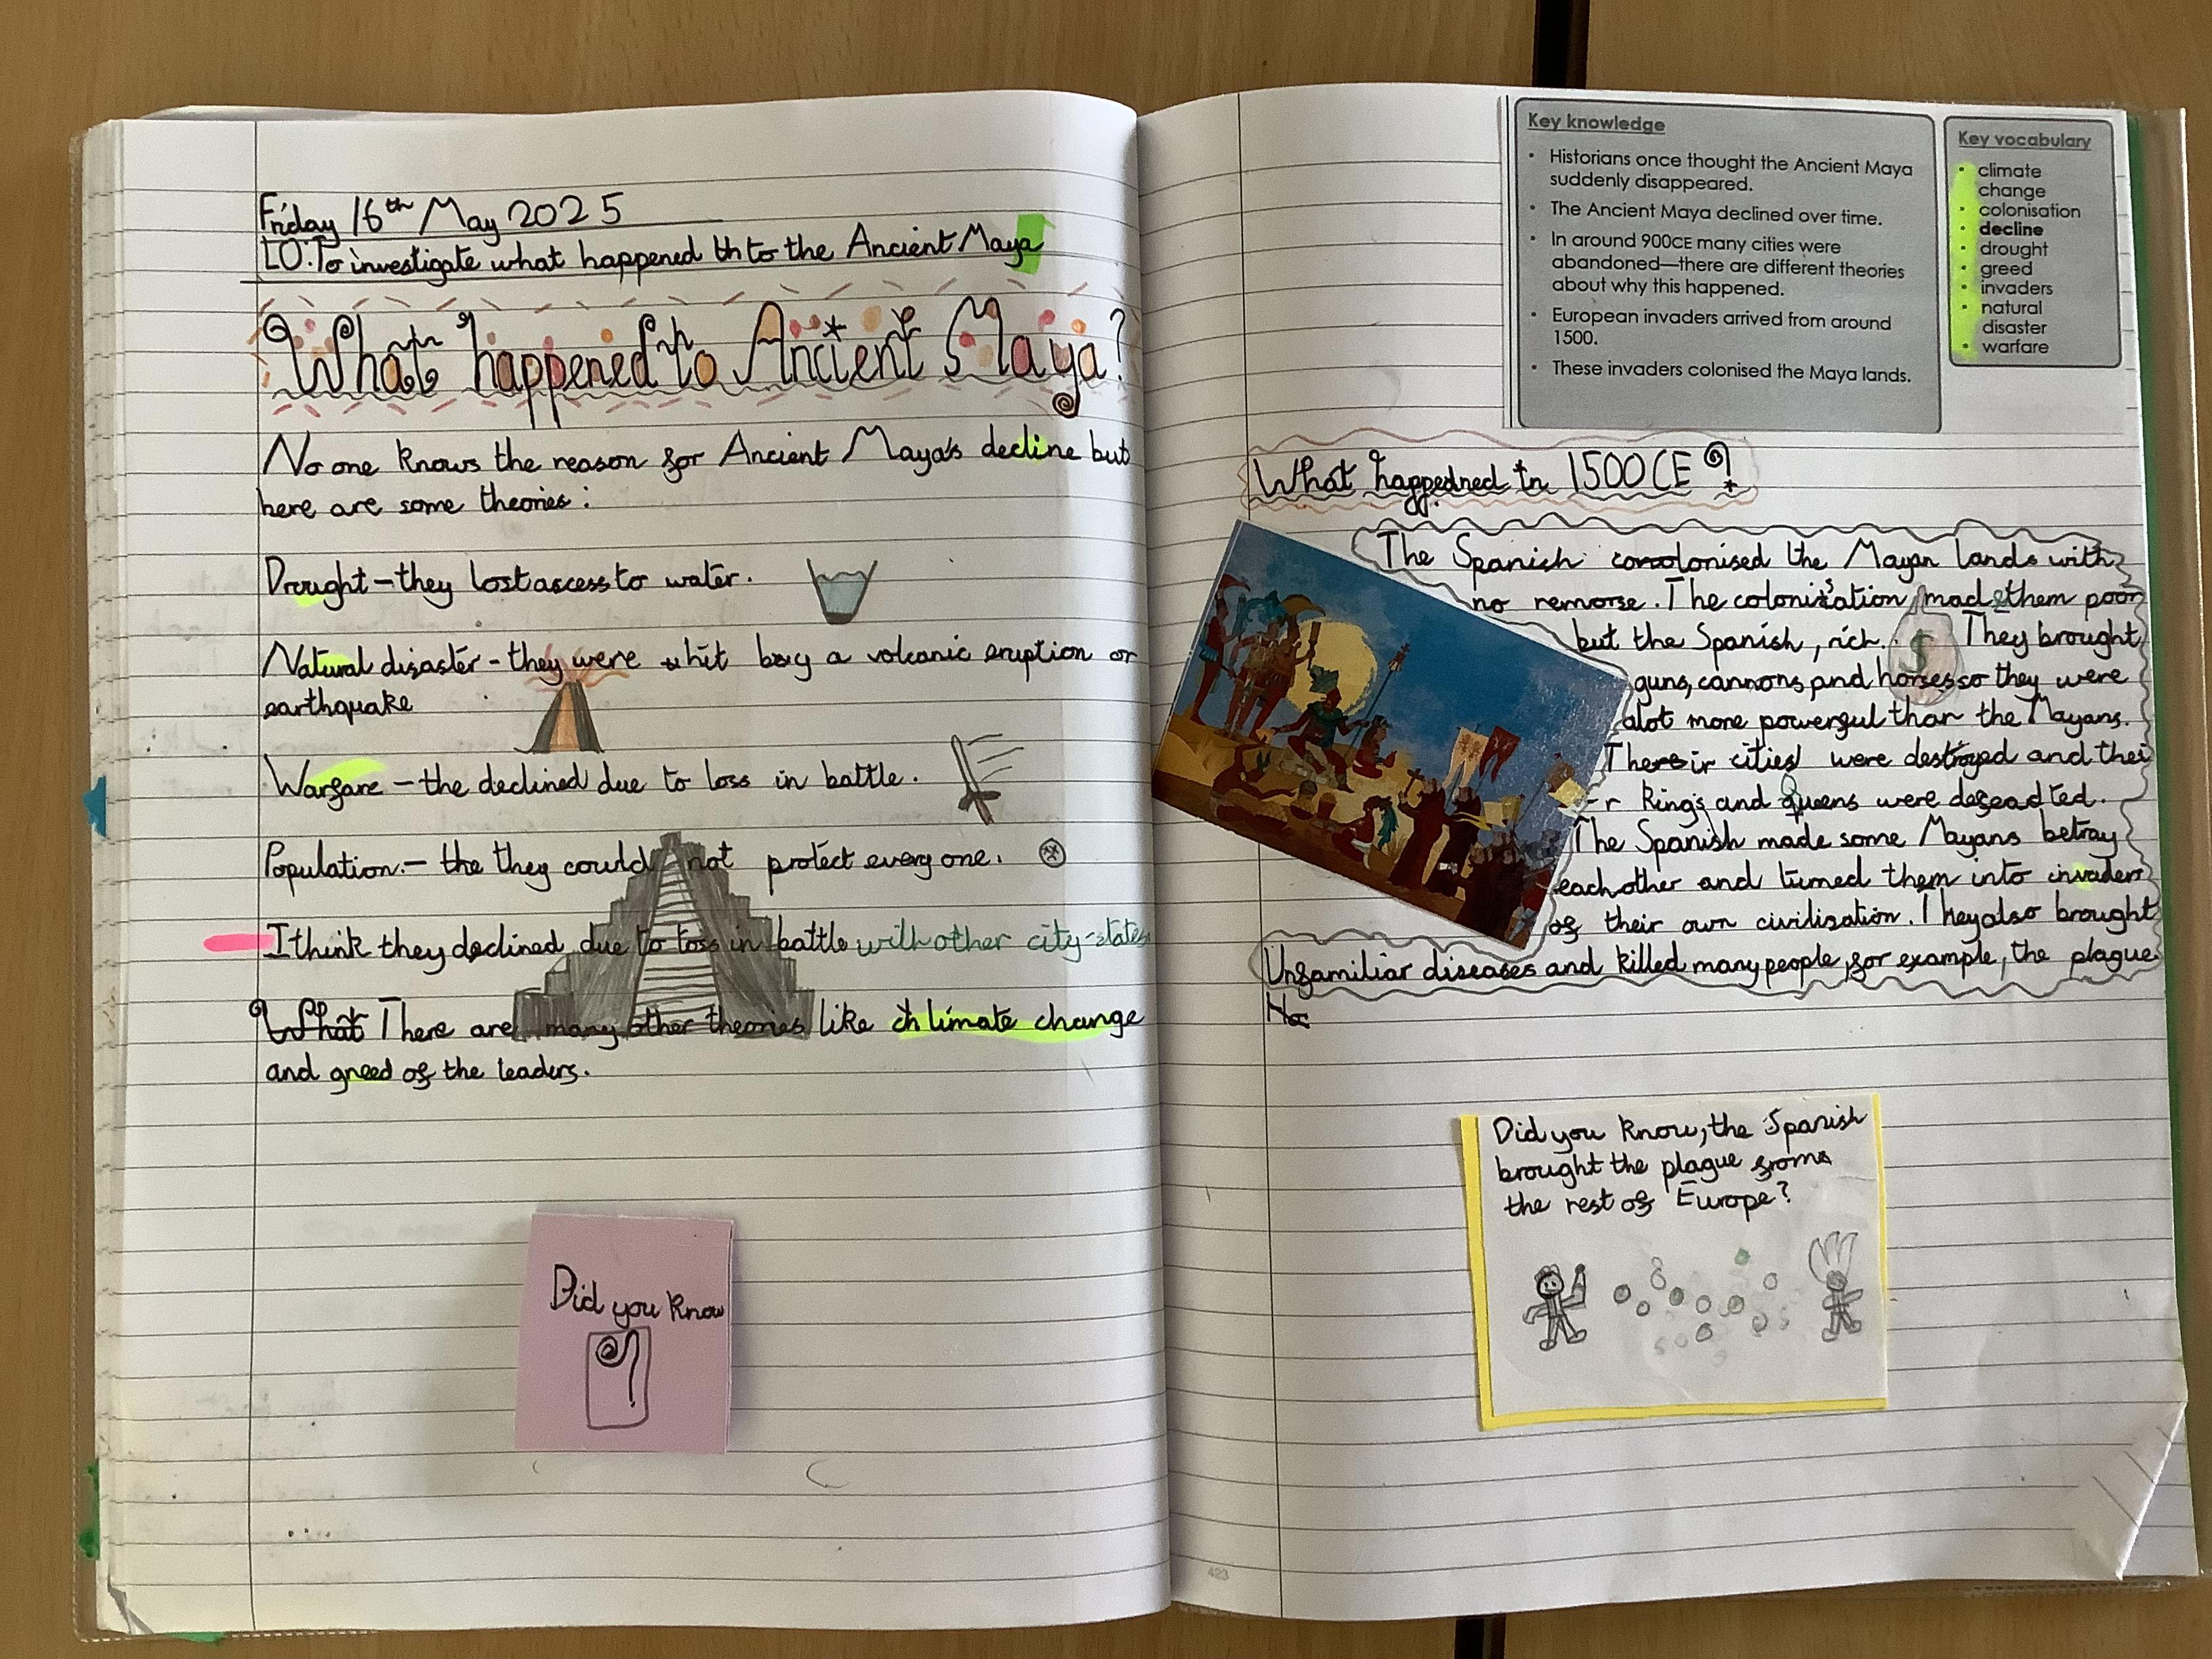 Friday 16th May 2025
LO: To investigate what happened th to the Ancient Maya
What happened to Ancient Maya?
No one knows the reason for Ancient Maya's decline but
here are some theories:
Drought - they lost ascess to water.
Natural disaster - they were hit by a volcanic eruption or
earthquake
Warfare - the declined due to loss in battle.
Population - the they could not protect everyone.
I think they declined due to loss in battle with other city-states
What There are many other theories like climate change
and greed of the leaders.
Did you know
?
Key knowledge
• Historians once thought the Ancient Maya
suddenly disappeared.
• The Ancient Maya declined over time.
• In around 900CE many cities were
abandoned—there are different theories
about why this happened.
• European invaders arrived from around
1500.
• These invaders colonised the Maya lands.
Key vocabulary
• climate
change
• colonisation
• decline
• drought
• greed
• invaders
• natural
disaster
• warfare
What happedned in 1500CE?
The Spanish colonised the Mayan lands with
no remorse. The colonisation made them poor
but the Spanish, rich. $ They brought
guns, cannons and horses so they were
alot more powerful than the Mayans.
Their cities were destroyed and thei
-r kings and queens were defeadted.
The Spanish made some Mayans betray
each other and turned them into invaders
of their own civilization. They also brought
Unfamiliar diseases and killed many people, for example, the plague
Did you know, the Spanish
brought the plague from
the rest of Europe?
423